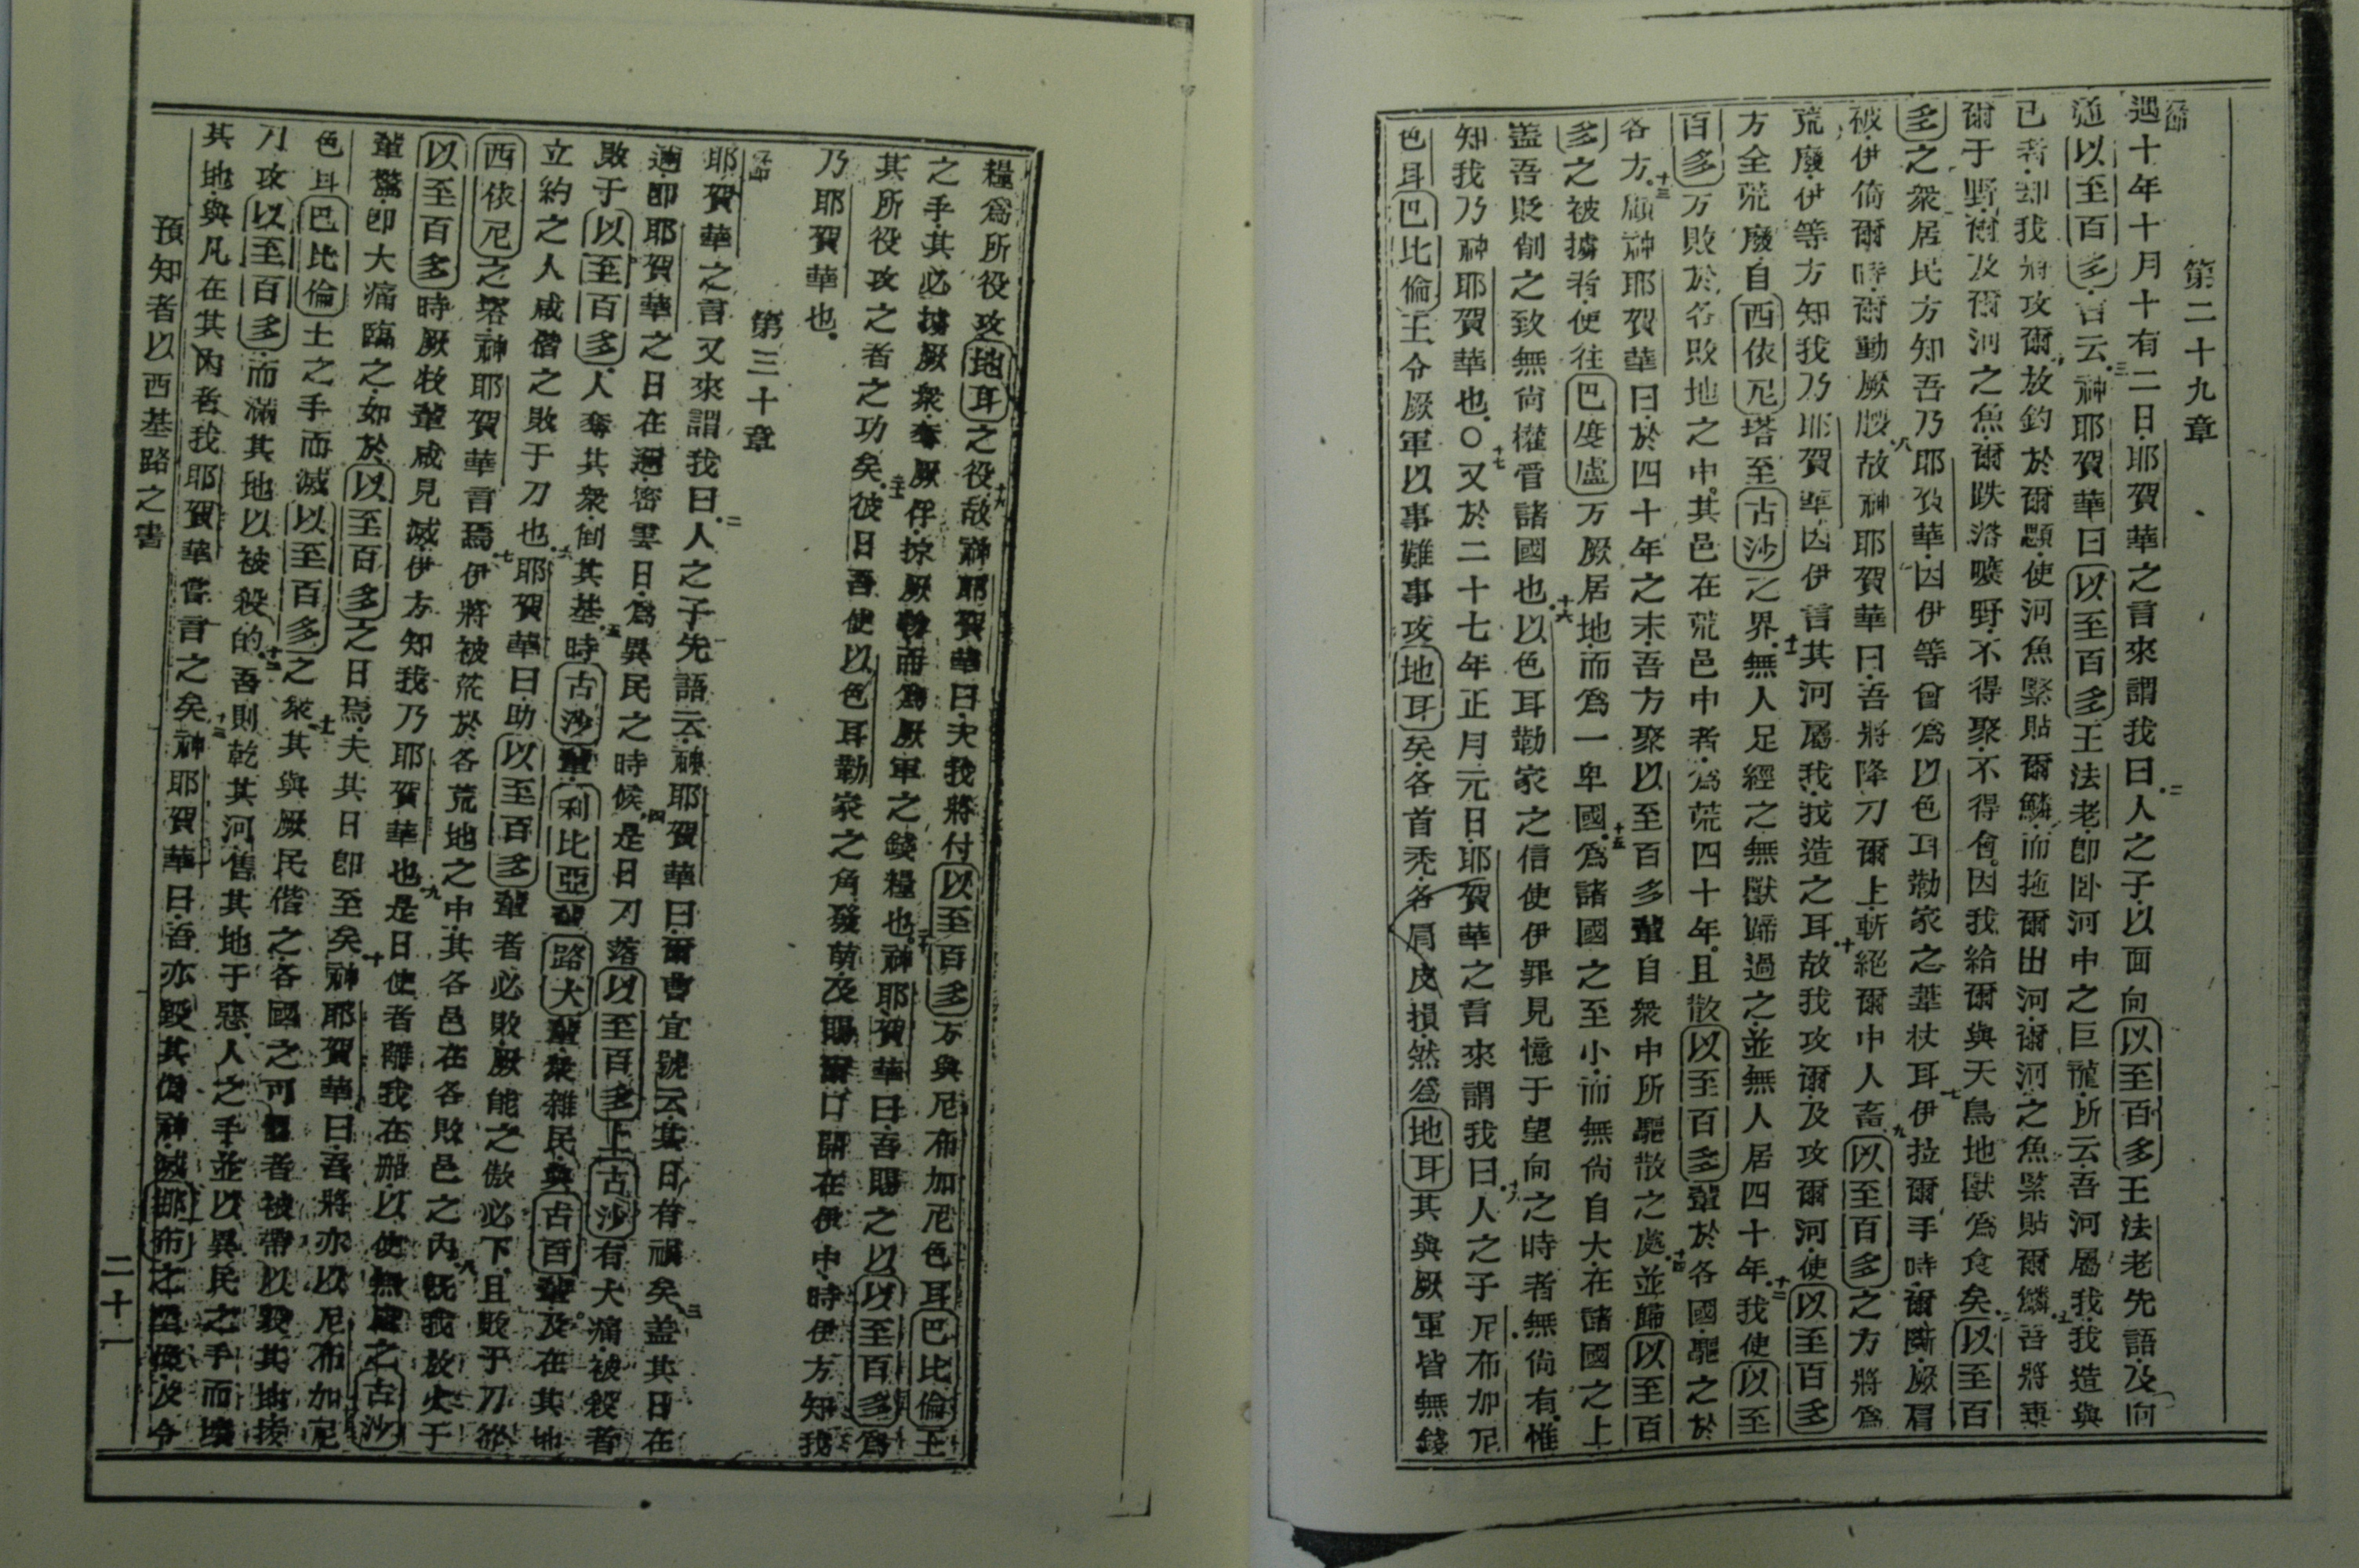 第二十九章
遇十年十月十有二日耶賀華之言來謂我曰二人之子以面向以至百多王法老先語及向
通以至百多言云三神耶賀華曰以至百多王法老即卧河中之巨龍所云吾河屬我我造與
已者却我將攻爾四放鈎於爾顋使河魚緊貼爾鱗而拖爾出河爾河之魚緊貼爾鱗五吾將棄
爾于野爾及爾河之魚爾跌落曠野不得聚不得會因我給爾與天鳥地獸爲食矣六以至百
多之衆居民方知吾乃耶賀華因伊等曾爲以色耳勒家之葦杖耳七伊拉爾手時爾斷厥肩
被伊倚爾時爾動厥腰八故神耶賀華曰吾將降刀爾上斬絕爾中人畜九以至百多之方將爲
荒廢伊等方知我乃耶賀華因伊言其河屬我我造之耳十故我攻爾及攻爾河使以至百多
方全荒廢自西依尼塔至古沙之界十一無人足經之無獸蹄過之並無人居四十年十二我使以至
百多方敗於各敗地之中其邑在荒邑中者爲荒四十年且散以至百多輩於各國驅之於
各方十三顧神耶賀華曰於四十年之末吾方聚以至百多輩自衆中所驅散之處十四並歸以至百
多之被擄者使往巴度盧方厥居地而爲一卑國十五爲諸國之至小而無尙自大在諸國之上
盖吾貶削之致無尙權管諸國也十六以色耳勒家之信使伊罪見憶于望向之時者無尙有惟
知我乃神耶賀華也○十七又於二十七年正月元日耶賀華之言來謂我曰十八人之子尼布加尼
色耳巴比倫王令厥軍以事難事攻地耳矣各首禿各肩皮損然爲地耳其與厥軍皆無錢
糧爲所役攻地耳之役十九故神耶賀華曰夫我將付以至百多方與尼布加尼色耳巴比倫王
之手其必擄厥衆奪厥俘掠厥物而爲厥軍之錢糧也二十神耶賀華曰吾賜之以以至百多爲
其所役攻之者之功矣二十一彼日吾使以色耳勒家之角發萌及賜爾口開在伊中時伊方知我
乃耶賀華也
第三十章
耶賀華之言又來謂我曰二人之子先語云神耶賀華曰爾曹宜號云其日有禍矣三盖其日在
邇即耶賀華之日在邇密雲日爲異民之時候四是日刀落以至百多上古沙有大痛被殺者
敗于以至百多人奪其衆倒其基五時古沙輩利比亞輩路大輩衆雜民與古百輩及在其地
立約之人咸偕之敗于刀也六耶賀華曰助以至百多輩者必敗厥能之傲必下且敗于刀從
西依尼之塔神耶賀華言焉七伊將被荒於各荒地之中其各邑在各敗邑之內八旣我放火于
以至百多時厥牧輩咸見滅伊方知我乃耶賀華也九是日使者離我在船以使無慮之古沙
輩驚即大痛臨之如於以至百多之日焉夫其日即至矣十神耶賀華曰吾將亦以尼布加尼
色耳巴比倫王之手而滅以至百多之衆十一其與厥民偕之各國之可懼者被帶以毀其地拔
刀攻以至百多而滿其地以被殺的十二吾則乾其河舊其地于惡人之手並以異民之手而壞
其地與凡在其內者我耶賀華嘗言之矣十三神耶賀華曰吾亦毀其偶神滅耶布之塑像及令
預知者以西基路之書
二十一